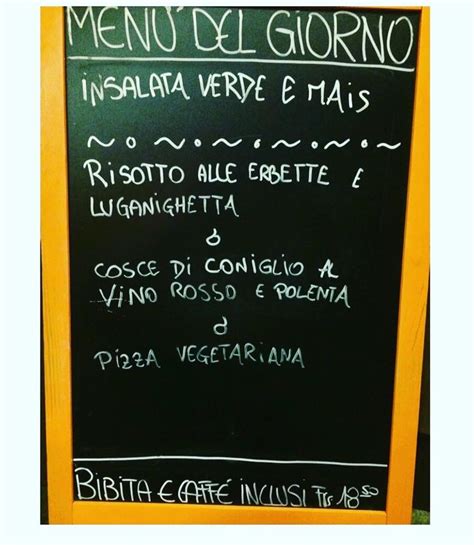 MENÙ DEL GIORNO
INSALATA VERDE E MAIS
RISOTTO ALLE ERBETTE E
LUGANIGHETTA
ó
COSCE DI CONIGLIO AL
VINO ROSSO E POLENTA
ó
PIZZA VEGETARIANA
BIBITA E CAFFÉ INCLUSI Frs 18.50